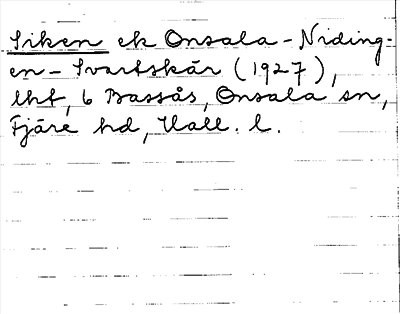 Siken ek Onsala-Niding-
en - Svartskär (1927),
lht, 6 Bassås, Onsala sn,
Fjäre hd, Hall. l.